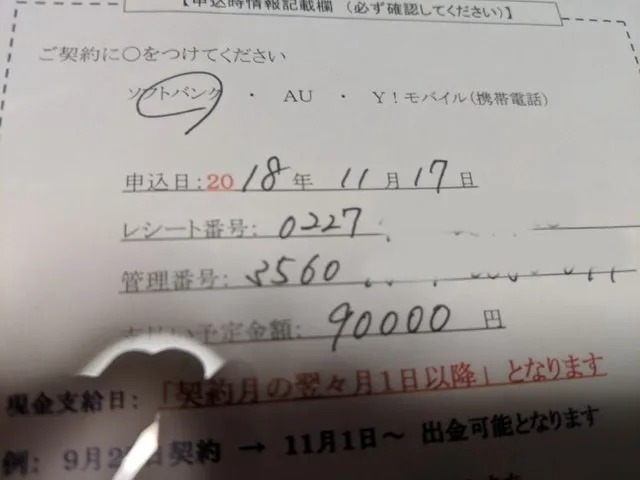 【申込時情報記載欄 (必ず確認してください)】
ご契約に〇をつけてください
ソフトバンク ・ AU ・ Y!モバイル(携帯電話)
申込日:2018年 11月17日
レシート番号: 0227
管理番号: 3560
支払い予定金額: 90000 円
現金支給日: 「契約月の翌々月1日以降」となります
例: 9月2 日契約 → 11月1日~ 出金可能となります